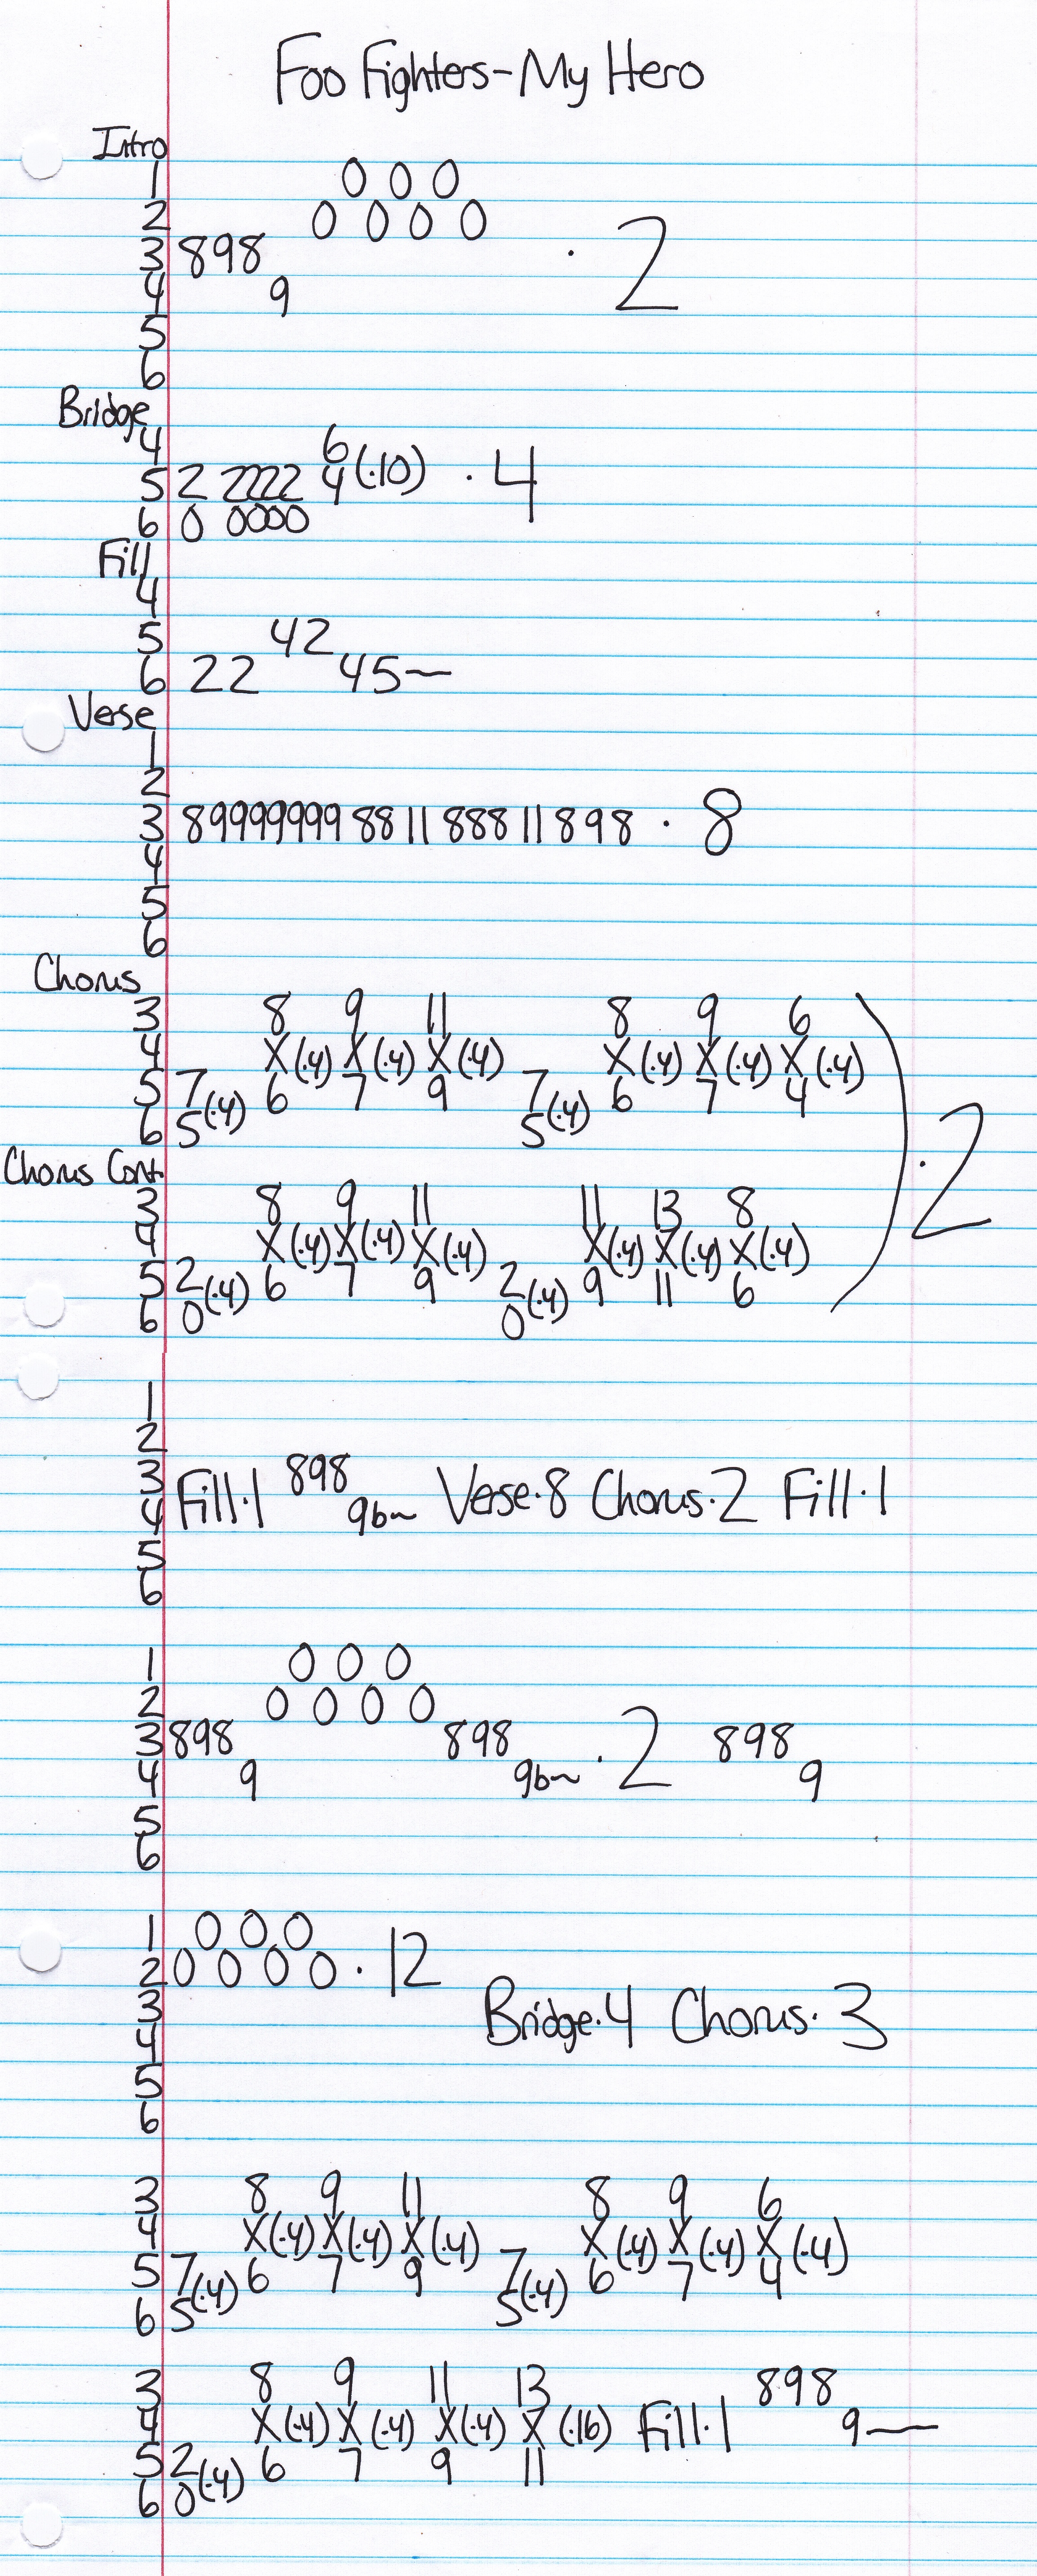 Foo Fighters-My Hero
Intro
1 0 0 0
2 0 0 0 0
3 898 · 2
4 9
5
6
Bridge
4 6
5 2 2222 4(·10) · 4
6 0 0000
Fill
4
5 42
6 22 45~
Verse
1
2
3 899999999 88 11 888 11 898 · 8
4
5
6
Chorus
3 8 9 11 8 9 6
4 X(·4) X(·4) X(·4) X(·4) X(·4) X(·4)
5 7(·4) 6 7 9 7(·4) 6 7 4
6 5 5
) · 2
Chorus Cont.
3 8 9 11 11 13 8
4 X(·4) X(·4) X(·4) X(·4) X(·4) X(·4)
5 2(·4) 6 7 9 2(·4) 9 11 6
6 0 0
1
2
3 898
4 Fill·1 9b~ Verse·8 Chorus·2 Fill·1
5
6
1 0 0 0
2 0 0 0 0
3 898 898 · 2 898
4 9 9b~ 9
5
6
1 0 0 0
2 0 0 0 0 · 12
3 Bridge·4 Chorus·3
4
5
6
3 8 9 11 8 9 6
4 X(·4) X(·4) X(·4) X(·4) X(·4) X(·4)
5 7(·4) 6 7 9 7(·4) 6 7 4
6 5 5
3 8 9 11 13 898
4 X(·4) X(·4) X(·4) X(·16) Fill·1 9—
5 2(·4) 6 7 9 11
6 0